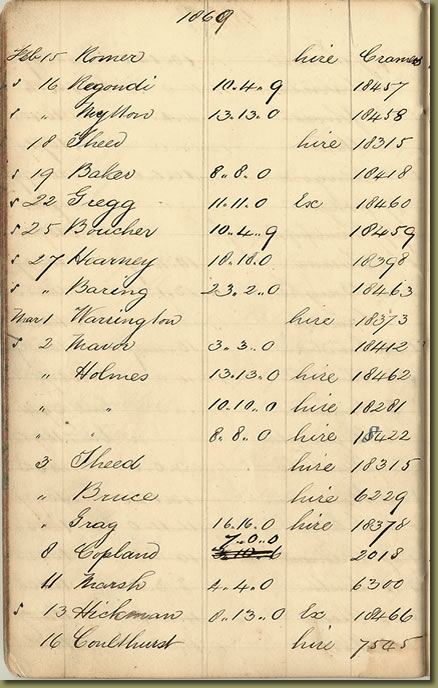 1869
Feb 15 Romer hire Cramer
s 16 Regondi 10.4.9 18457
s " Mytton 13.13.0 18458
18 Theed hire 18315
s 19 Baker 8.8.0 18418
s 22 Gregg 11.11.0 Ex 18460
s 25 Boucher 10.4.9 18459
s 27 Hearney 18.18.0 18398
s " Baring 23.2.0 18463
Mar 1 Warrington hire 18373
s 2 Mavor 3.3.0 18412
" Holmes 13.13.0 hire 18462
" " 10.10.0 hire 18281
" " 8.8.0 hire 18422
3 Theed hire 18315
" Bruce hire 6229
" Grag 16.16.0 hire 18378
7.0.0
8 Copland 2018
11 Marsh 4.4.0 6300
s 13 Hickman 8.13.0 Ex 18466
16 Coulthurst hire 7545